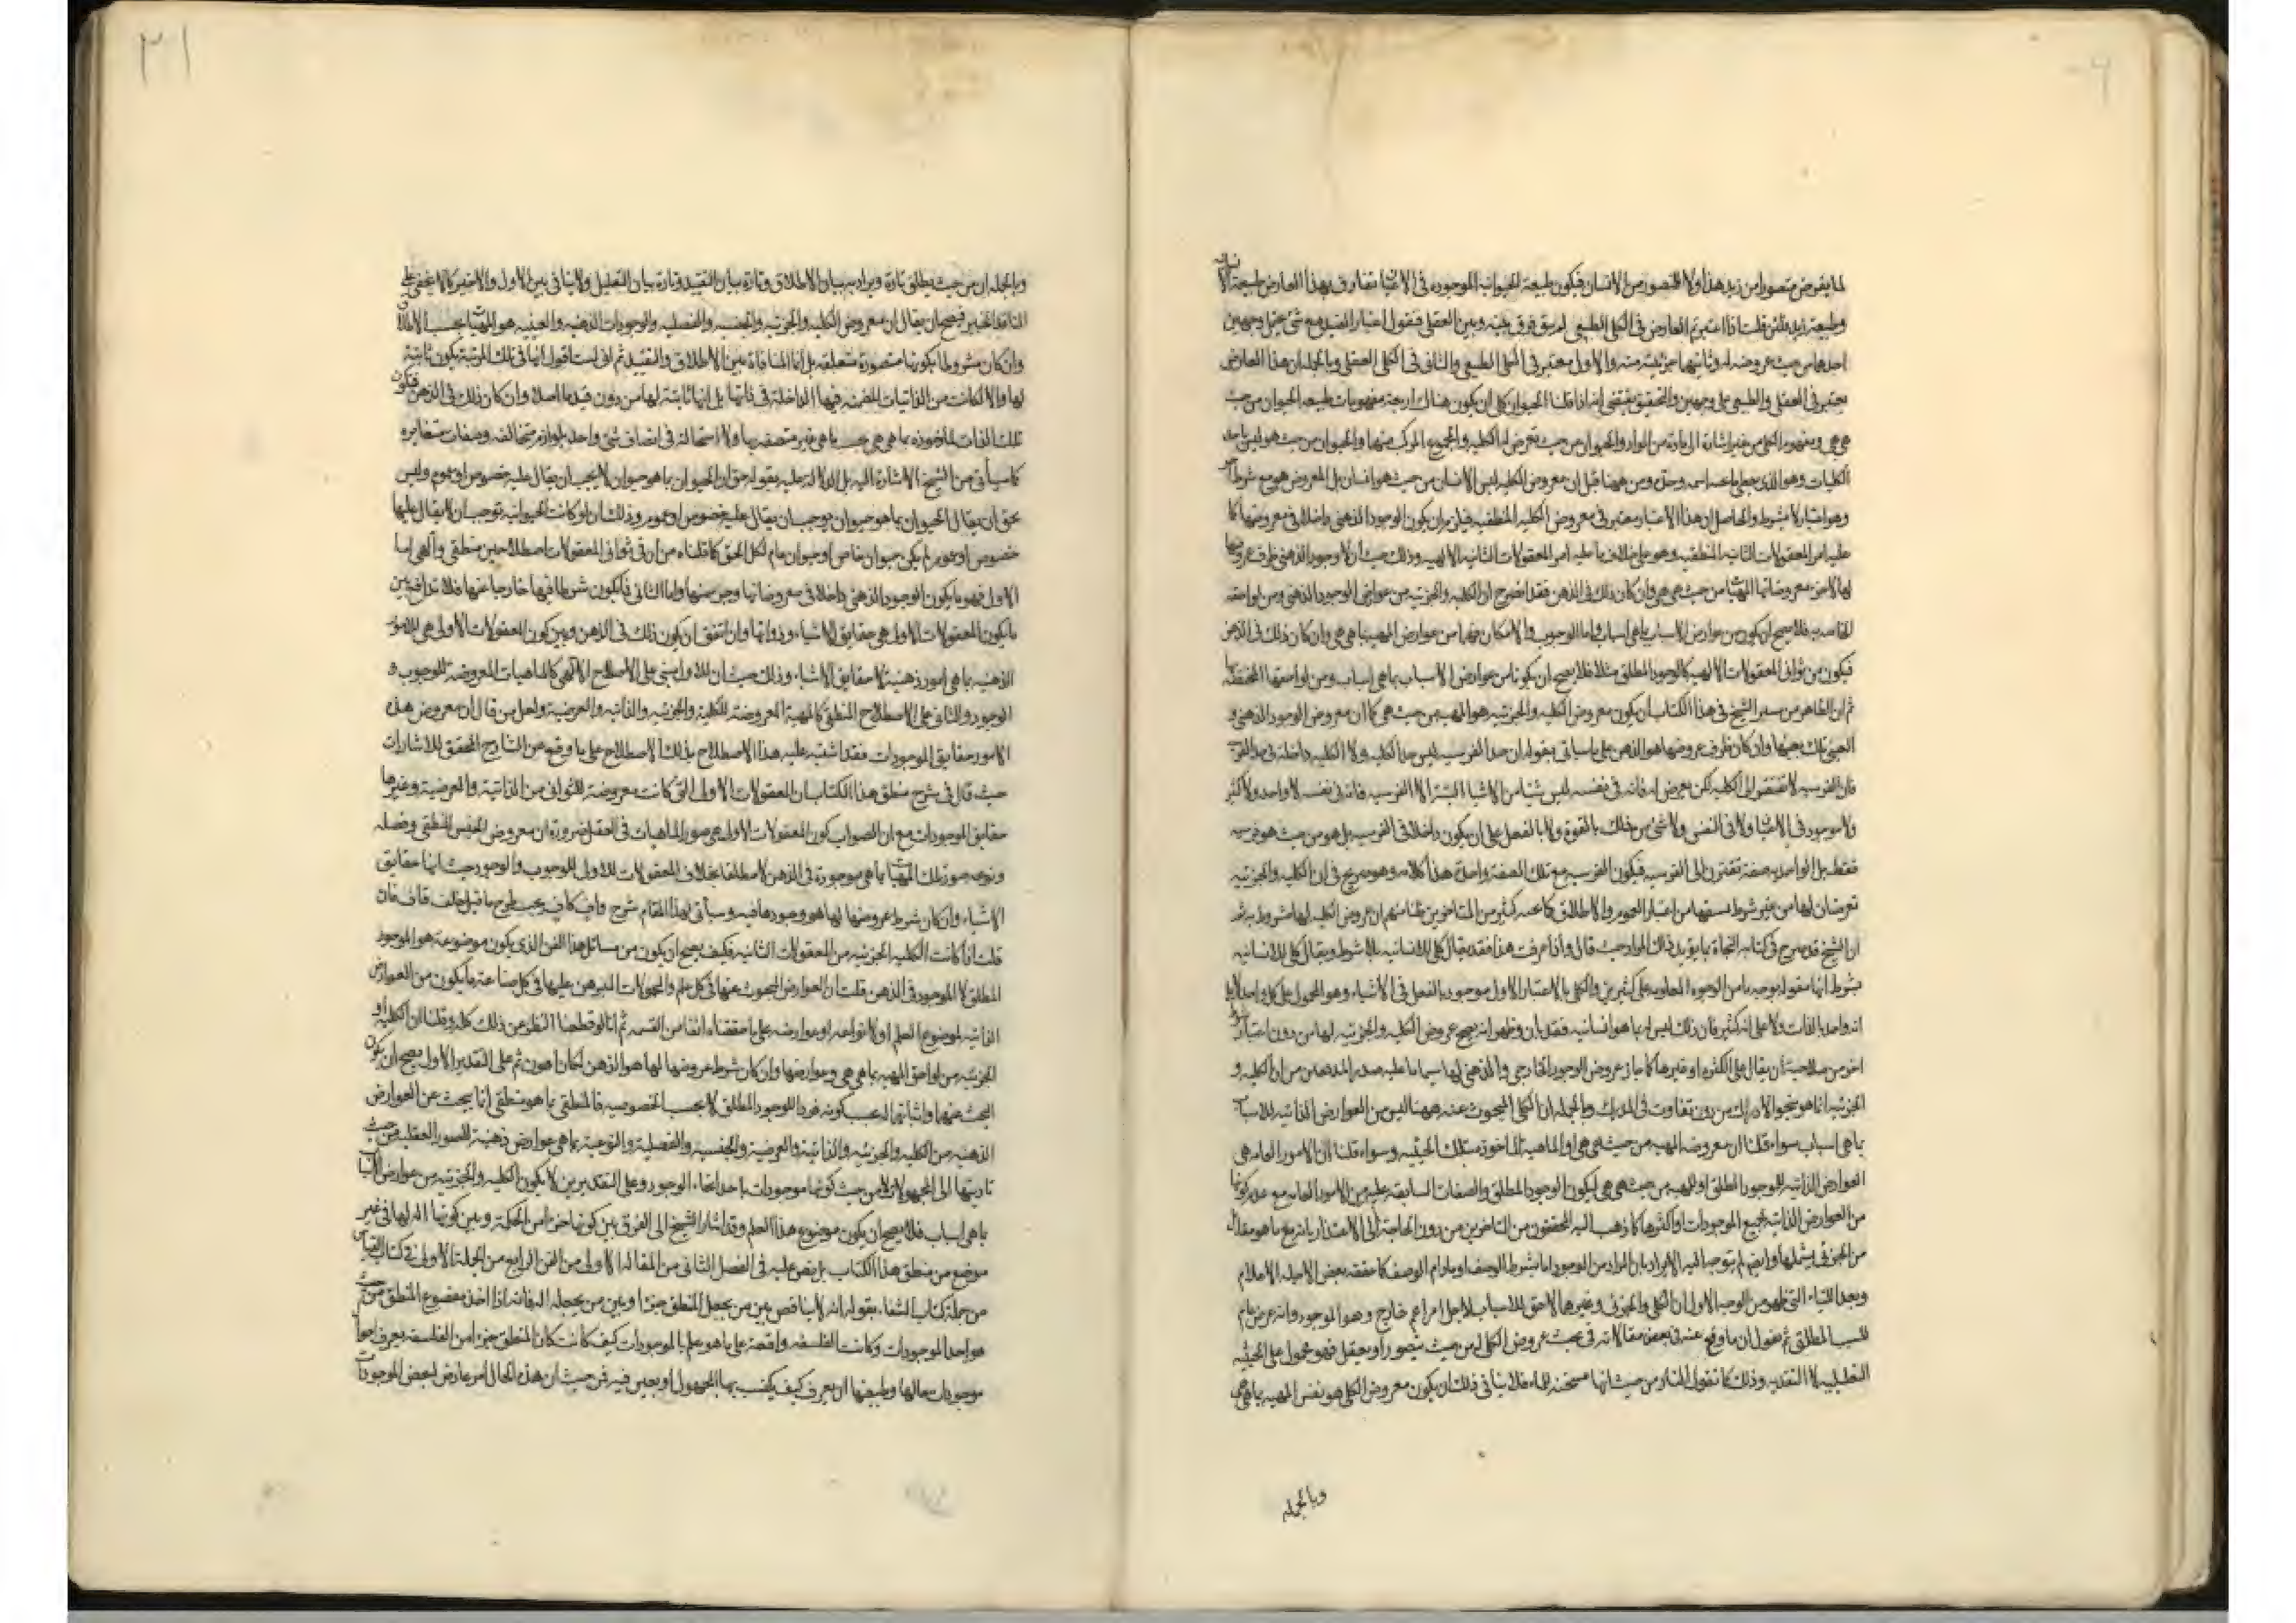 لما يفرض متصورا من زيد هذا اولا المتصور من الانسان فيكون طبيعة الحيوانية الموجودة في الاعيان تفارق بهذا العارض طبيعة الا
وطبيعة زيد فلئن قلت اذا اعتبرتم العارض في الكلي الطبيعي لم يبق فرق بينه وبين العقلي فنقول اعتبار القيد مع شئ يحتمل وجهين
احدهما من حيث عروضه له وثانيهما جزئيته منه والاول معتبر في الكلي الطبيعي والثاني في الكلي العقلي وبالجملة ان هذا العارض
يعتبر في العقلي والطبيعي على وجهين والتحقيق يقتضي انه اذا قلنا الحيوان كلي ان يكون هناك اربعة مفهومات طبيعة الحيوان من حيث
هي هي ومفهوم الكلي من غير اشارة الى مادة من المواد والحيوان من حيث تعرض له الكلية والمجموع المركب منهما والحيوان من حيث هو ليس باحد
الكليات وهو الذي يعطي ما تحته اسمه وحده ومن ههنا قيل ان معروض الكلية ليس الانسان من حيث هو انسان بل المعروض هو مع شرط
وهو اعتبار لا بشرط والحاصل ان هذا الاعتبار معتبر في معروض الكلية المنطقية فيلزم ان يكون الوجود الذهني داخلا في معروضها كما
عليه امر المعقولات الثانية المنطقية وهو على خلاف ما عليه امر المعقولات الثانية الالهية وذلك حيث ان الوجود الذهني ظرف عروضها
لها لا جزء معروضاتها المهيات من حيث هي هي وان كان ذلك في الذهن فقد اتضح ان الكلية والجزئية من عوارض الوجود الذهني ومن لواحقه
الخاصة به فلا يصح ان يكون من عوارض الاسباب بما هي اسباب واما الوجوب والامكان فهما من عوارض المهية بما هي هي وان كان ذلك في الذهن
فيكون من ثواني المعقولات الالهية كالوجود المطلق مثلا فلا يصح ان يكونا من عوارض الاسباب بما هي اسباب ومن لواحقها المختصة بها
ثم ان الظاهر من سير الشيخ في هذا الكتاب ان يكون معروض الكلية والجزئية هو المهية من حيث هي كما ان معروض الوجود الذهني و
العيني تلك بعينها وان كان ظرف عروضها هو الذهن على ما سياتي بقوله ان حد الفرسية ليس حد الكلية ولا الكلية داخلة في حد الفرسية
فان الفرسية لا تفتقر الى الكلية لكن تعرض له فانه في نفسه ليس شيئا من الاشياء البتة الا الفرسية فانه في نفسه لا واحد ولا كثير
ولا موجود في الاعيان ولا في النفس ولا شئ من ذلك بالقوة ولا بالفعل على ان يكون داخلا في الفرسية بل هو من حيث هو فرسية
فقط بل الواحدية صفة تقترن الى الفرسية فيكون الفرسية مع تلك الصفة واحدة هذا كلامه وهو صريح في ان الكلية والجزئية
تعرضان لها من غير شرط يسبقها من اعتبار العموم والاطلاق كما عنه كثير من المتاخرين ظنا منهم ان عروض الكلية لها مشروط به ثم
ان الشيخ قد صرح في كتابه النجاة بما يؤيد ذلك المراد حيث قال واذا عرفت هذا فقد يقال كلي للانسانية بلا شرط ويقال كلي للانسانية
بشرط انها مقولة بوجه ما من الوجوه المعلومة على كثيرين والكلي بالاعتبار الاول موجود بالفعل في الاشياء وهو المحمول على كل واحد لا على
انه واحد بالذات ولا على انه كثير فان ذلك ليس له بما هو انسانية فقد بان وظهر انه يصح عروض الكلية والجزئية لها من دون اعتبار
اخر من صلاحية ان يقال على الكثرة او غيرها كما جاز عروض الوجود الخارجي والذهني لها سيما ما عليه من ان الكلية و
الجزئية انما هو بنحو الادراك من دون تفاوت في المدرك وبالجملة ان الكلي المبحوث عنه ههنا ليس من العوارض الذاتية للاسباب
بما هي اسباب سواء قلنا ان معروضه المهية من حيث هي هي او الماهية الماخوذة بتلك الحيثية وسواء قلنا ان الامور العامة هي
العوارض الذاتية للوجود المطلق او للمهية من حيث هي هي ليكون الوجود المطلق والصفات السابقة عليه من الامور العامة مع عدم كونها
من العوارض الذاتية لجميع الموجودات او اكثرها كما ذهب اليه المحققون من المتاخرين من دون الحاجة الى الاعتذار بانه مع ما هو مقابل
من الجزئي يشملها وايضا لم يتوجه اليه الايراد بان المراد من الموجود اما بشرط الوصف او ما دام الوصف كما حققه بعض الاعلام
وبعد اللتيا والتي ظهر من الوجه الاول ان الكلي والجزئي وغيرهما لاحق للاسباب لاجل امر اعم خارج وهو الموجود وانه عرض عام
للسبب المطلق ثم نقول ان ما وقع عنه في بعض مقالاته في بحث عروض الكلي له من حيث يتصور او يعقل فهو محمول على الحيثية
التعليلية لا التقييدية وذلك كما تقول النار من حيث انها مسخنة للماء فلا ينافي ذلك ان يكون معروض الكلي هو نفس المهية بما هي هي
وبالجملة
٢١
وبالجملة ان من حيث يطلق تارة ويراد به بيان الاطلاق وتارة بيان التقييد وتارة بيان التعليل ولا ينافي بين الاول والاخير كما لا يخفى على
الناقد الخبير فيصح ان يقال ان معروض الكلية والجزئية والجنسية والفصلية والوجودات الذهنية والعينية هو المهيات بحسب الاطلاق
وان كان مشروطا بكونها متصورة متعلقة بل انما المنافاة بين الاطلاق والتقييد ثم اني لست اقول انها في تلك المرتبة يكون ثابتة
لها والا لكانت من الذاتيات المتضمنة فيها الداخلة في ذاتها بل انها ثابتة لها من دون قيد ما اصلا وان كان ذلك في الذهن فيكون
تلك الذات الماخوذة بما هي هي يجب ما هي غير متصفة بها ولا استحالة في اتصاف شئ واحد بلوازم متخالفة وصفات متغايرة
كما سياتي من الشيخ الاشارة اليه بل الدلالة عليه بقوله حق ان الحيوان بما هو حيوان لا يجب ان يقال عليه خصوص او عموم وليس
بحق ان يقال الحيوان بما هو حيوان يوجب ان يقال عليه خصوص او عموم وذلك انه لو كانت الحيوانية توجب ان لا يقال عليها
خصوص او عموم لم يكن حيوان خاص او حيوان عام لكل الحق كما قلناه من ان في ثواني المعقولات اصطلاحين منطقي والهي اما
الاول فهو ما يكون الوجود الذهني داخلا في معروضاتها وجزء منها واما الثاني فما يكون شرطا فيها خارجا عنها فلا تدافع بين
ما يكون المعقولات الاولى هي حقايق الاشياء وذواتها وان اتفق ان يكون ذلك في الذهن وبين كون المعقولات الاولى هي الامور
الذهنية بما هي امور ذهنية لا حقايق الاشياء وذلك حيث ان الاول مبني على الاصطلاح الالهي كالماهيات المعروضة للوجوب و
الوجود والثاني على الاصطلاح المنطقي كالمهية المعروضة للكلية والجزئية والذاتية والعرضية ولعل من قال ان معروض هذه
الامور حقايق الموجودات فقد اشتبه عليه هذا الاصطلاح بذلك الاصطلاح على ما وقع من الشارح المحقق للاشارات
حيث قال في شرح منطق هذا الكتاب ان المعقولات الاولى التي كانت معروضة للثواني من الذاتية والعرضية وغيرها
حقايق الموجودات مع ان الصواب كون المعقولات الاولى هي صور الماهيات في العقل ضرورة ان معروض الجنس المنطقي وفصله
ونوعه صور تلك المهيات بما هي موجودة في الذهن لا مطلقا بخلاف المعقولات الاولى للوجوب والوجود حيث انها حقايق
الاشياء وان كان شرط عروضها لها هو وجودها فيه وسيأتي لهذا المقام شرح واف كاف يجب طرح ما قيل خلف قاف فان
قلت اذا كانت الكلية والجزئية من المعقولات الثانية فكيف يصح ان يكون من مسائل هذا الفن الذي يكون موضوعه هو الموجود
المطلق لا الموجود في الذهن قلت ان العوارض المبحوث عنها في كل علم والمحمولات المبرهن عليها في كل صناعة ما يكون من العوارض
الذاتية لموضوع العلم او لانواعه او عوارضه على ما حققناه انفا من القسمة ثم انا لو قطعنا النظر عن ذلك كله وقلنا ان الكلية او
الجزئية من لواحق المهية بما هي هي وعوارضها وان كان شرط عروضها لها هو الذهن لكان اهون ثم على التقدير الاول يصح ان يكون
البحث عنها واثباتها له بحسب كونه فردا للوجود المطلق لا بحسب الخصوصية فالمنطقي بما هو منطقي انما يبحث عن العوارض
الذهنية من الكلية والجزئية والذاتية والعرضية والجنسية والفصلية والنوعية بما هي عوارض ذهنية للصور العقلية من حيث
تاديتها الى المجهولات لا من حيث كونها موجودات باحد انحاء الوجود وعلى التقديرين لا يكون الكلية والجزئية من عوارض الاسباب
بما هي اسباب فلا يصح ان يكون موضوع هذا العلم وقد اشار الشيخ الى الفرق بين كونها جزء من الحكمة وبين كونها الة لها في غير
موضع من منطق هذا الكتاب بل نص عليه في الفصل الثاني من المقالة الاولى من الفن الرابع من الجملة الاولى في كتاب القياس
من جملة كتاب الشفاء بقوله انه لا يناقض بين من يجعل المنطق جزءا وبين من يجعله الة فانه اذا اخذ موضوع المنطق من حيث
هو احد الموجودات وكانت الفلسفة واقعة على ما هو علم بالموجودات كيف كانت كان المنطق جزءا من الفلسفة يعرف احوال
موجودات حالها وطبيعتها ان يعرف كيف يكتسب بها المجهول او يعين فيه فمن حيث ان هذه الحال امر عارض لبعض الموجودات